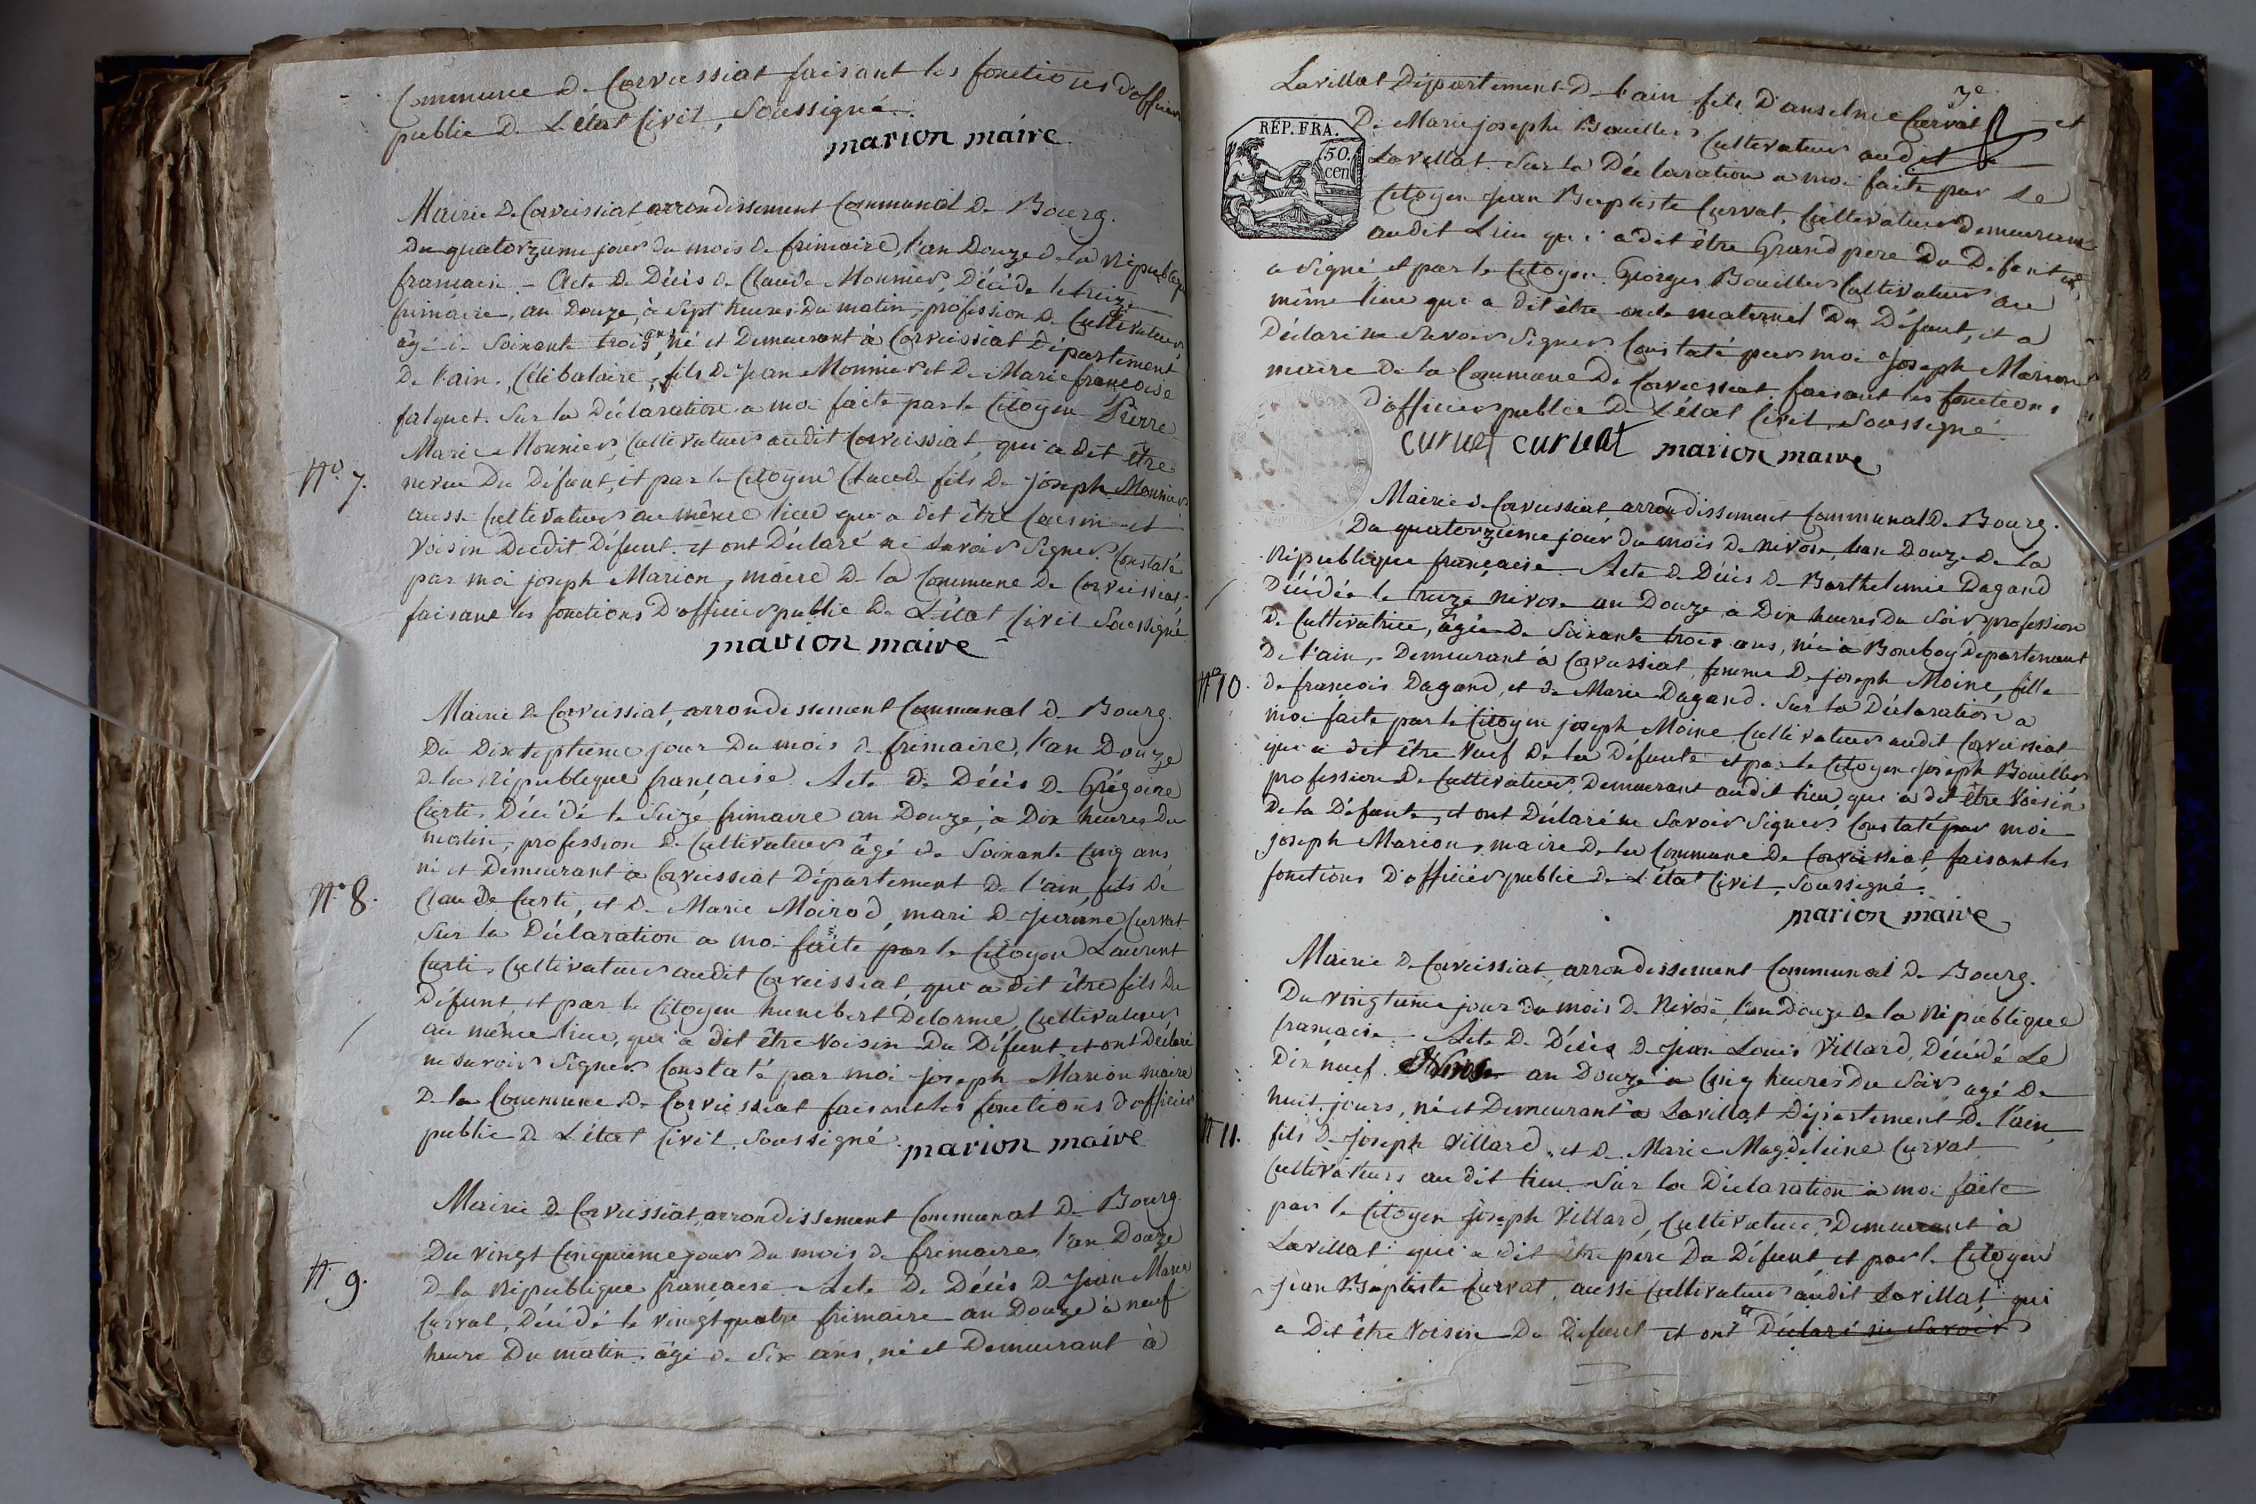 Commune De Corveissiat faisant les fonctions d'officier
public De L'état Civil, Soussigné.
marion maire
Mairie De Corveissiat arrondissement Communal De Bourg.
Du quatorzieme jour du mois de frimaire, l'an Douze de la République
francaise. - Acte De Décès de Claude Monnier, Décédé le treize
frimaire, an Douze, à Sept heures Du matin, profession De Cultivateur,
âgé de Soixante trois ans, né et Demeurant à Corveissiat Département
De l'ain. Célibataire, fils De Jean Monnier et De Marie françoise
falquet. Sur la Déclaration a moi faite par le Citoyen Pierre
Marie Monnier, Cultivateur audit Corveissiat, qui a dit être
neveu Du Défunt, et par le Citoyen Claude fils De joseph Monnier
aussi Cultivateur au même lieu qui a dit être Cousin et
Voisin Dudit Défunt. et ont Déclaré ne Savoir Signer. Constaté
par moi joseph Marion, maire De la Commune De Corveissiat
faisant les fonctions D'officier public De L'état Civil Soussigné
N° 7.
marion maire
Mairie De Corveissiat, arrondissement Communal De Bourg.
Du Dix Septieme jour Du mois de frimaire, l'an Douze
De la République française. Acte De Décès De Grégoire
Curti, Décédé le Seize frimaire an Douze, à Dix heures Du
matin, profession De Cultivateur âgé de Soixante Cinq ans
né et Demeurant à Corveissiat Département De l'ain fils De
Claude Curti, et De Marie Moirod, mari De Jeanne Curvat
N° 8.
Sur la Déclaration a moi faite par le Citoyen Laurent
Curti, Cultivateur audit Corveissiat qui a dit être fils Du
Défunt, et par le Citoyen humbert Delorme, Cultivateur
au même lieu, qui a dit être Voisin Du Défunt et ont Déclaré
ne Savoir Signer Constaté par moi Joseph Marion maire
De la Commune De Corveissiat faisant les fonctions D'officier
public De L'état Civil Soussigné.
marion maire
Mairie De Corveissiat, arrondissement Communal De Bourg.
Du Vingt Cinquieme jour Du mois de frimaire, l'an Douze
N° 9.
De la République francaise - Acte De Décès De Jean Marie
Curvat, Décédé le Vingt quatre frimaire an Douze à neuf
heure Du matin, âgé de Six ans, né et Demeurant à
7e
Lavillat Département De l'ain fils D'anselme Curvat et
De Marie josephe Bouiller Cultivateur audit
RÉP. FRA.
50.
cen
Lavillat. Sur la Déclaration a moi faite par Le
Citoyen Jean Baptiste Curvat, Cultivateur Demeurant
audit Lieu qui a dit être Grand pere Du Defunt et
a Signé et par le Citoyen Georges Bouiller Cultivateur au
même lieu qui a dit être oncle maternel Du Défunt, et a
Déclaré ne Savoir Signer Constaté par moi joseph Marion
maire De la Commune De Corveissiat faisant les fonctions
D'officier public De L'état Civil Soussigné.
curvat curvat marion maire
Mairie De Corveissiat arrondissement Communal De Bourg.
Du quatorzieme jour du mois De nivose, l'an Douze De La
République française. Acte De Décès De Barthelemie Dagand
Décédée le treize nivose an Douze à Dix heures Du Soir profession
De Cultivatrice, âgée De Soixante trois ans, née à Département
De l'ain, Demeurant à Corveissiat, femme De joseph Moine, fille
N° 10.
De francois Dagand, et de Marie Dagand. Sur la Déclaration a
moi faite par le Citoyen joseph Moine Cultivateur audit Corveissiat
qui a dit être Veuf De la Défunte et par le Citoyen Joseph Bouiller
profession De Cultivateur, Demeurant audit lieu, qui a dit être Voisin
De la Défunte, et ont Déclaré ne Savoir Signer Constaté par moi
joseph Marion, maire De la Commune De Corveissiat faisant les
fonctions D'officier public De L'état Civil, Soussigné.
marion maire
Mairie De Corveissiat, arrondissement Communal De Bourg.
Du Vingtieme jour Du mois De Nivose, l'an Douze De la République
francaise - Acte De Décès De Jean Louis Villard, Décédé Le
Dix neuf an Douze à Cinq heures Du Soir âgé De
huit jours, né et Demeurant à Lavillat Département De l'ain,
N° 11.
fils De Joseph Villard, et De Marie Magdeleine Curvat
Cultivateurs audit lieu. Sur la Déclaration à moi faite
par le Citoyen Joseph Villard, Cultivateur, Demeurant à
Lavillat qui a dit être pere Du Défunt, et par le Citoyen
Jean Baptiste Curvat, aussi Cultivateur audit Lavillat qui
a Dit être Voisin Du Défunt et ont Déclaré ne Savoir